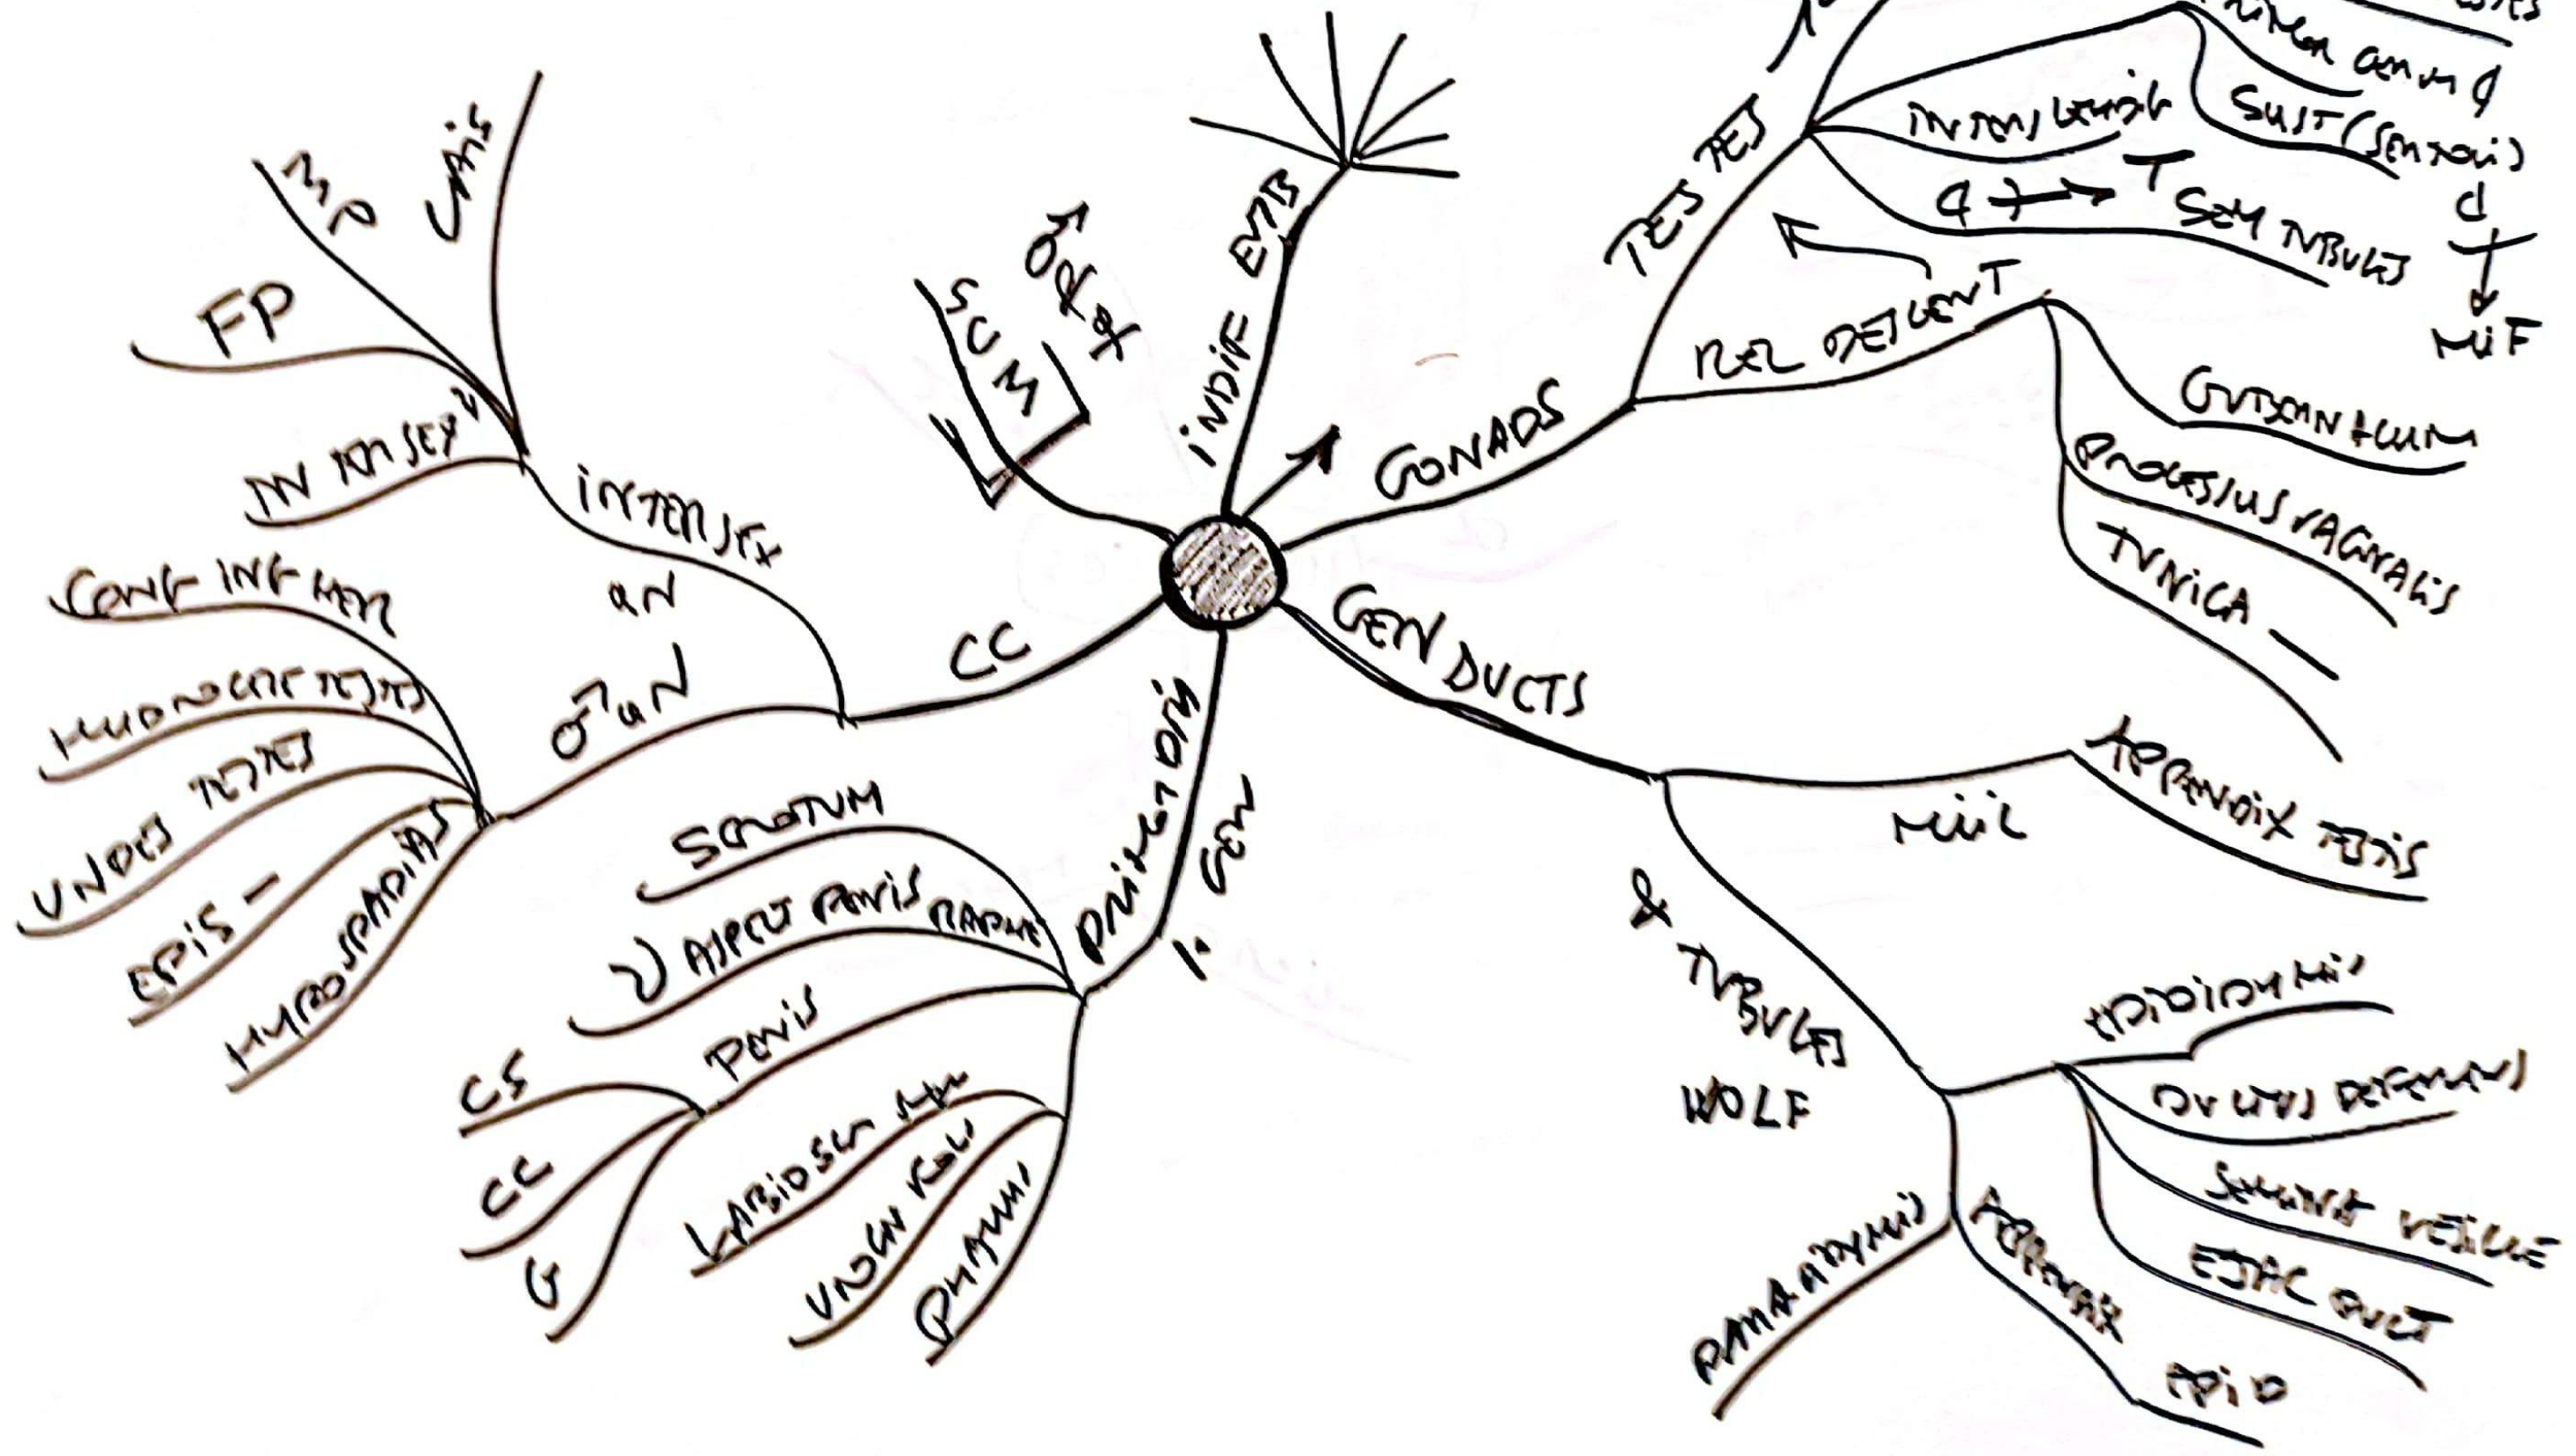 CAIS
MP
FP
INTERSEX
INTERSEX
an
CONG ING HER
HYDROCELE TESTES
UNDES TESTES
EPIS —
HYPOSPADIAS
♂ an
CC
SUM
INDIF EMB
GONADS
TESTES
SUST (SERTOLI)
INTERS LEYDIG
T
SEM TUBULES
MIF
REL DESCENT
GUBERNACULUM
PROCESSUS VAGINALIS
TUNICA —
GEN DUCTS
MÜL
APPENDIX TESTIS
& TUBULES
WOLF
EPIDIDYMIS
DUCTUS DEFERENS
SEMINAL VESICLE
EJAC DUCT
APPENDIX
EPID
PARADIDYMIS
GEN
SCROTUM
V ASPECT PENIS RAPHE
PENIS
CS
CC
G
UROGN FOL
PHALL